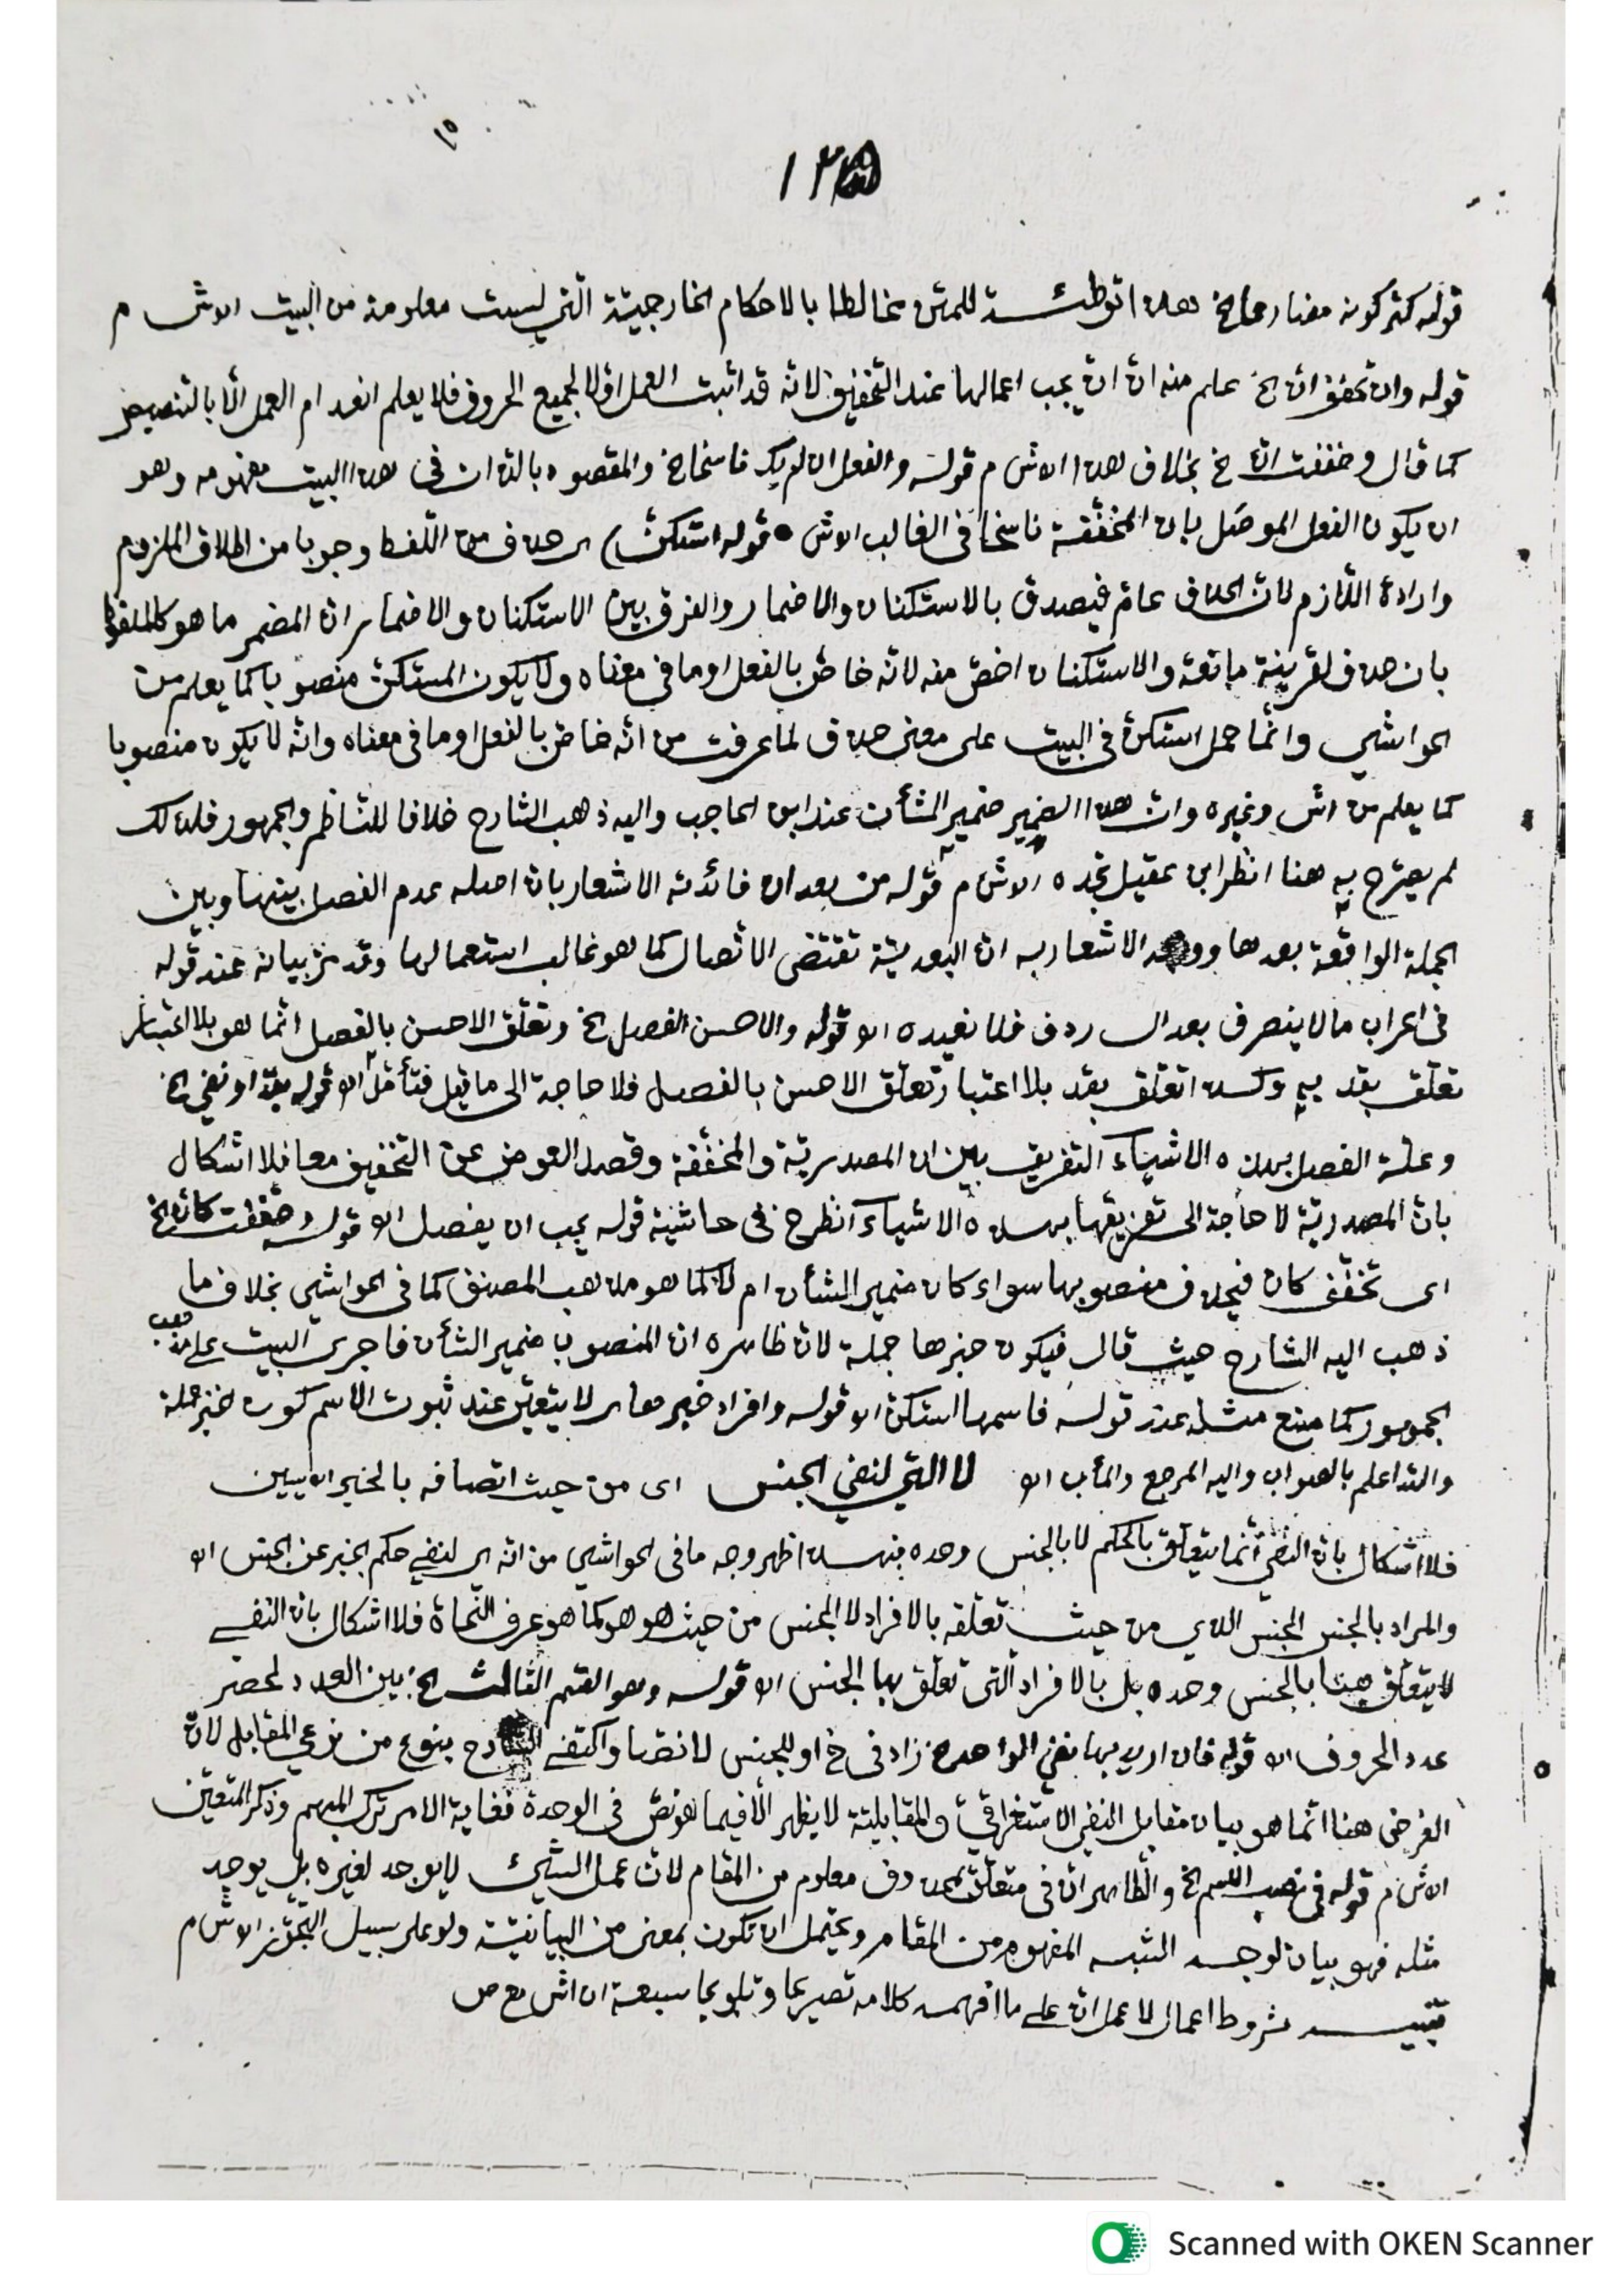 ١٥
١٢
قوله كثر كونه مضارعا الخ هذا توطئة للمتن مخالطا بالاحكام الخارجيّة الّتي ليست معلومة من البيت الاش م
قوله وان تخفف انّ الخ علم منه انّ انّ يجب اعمالها عند التّخفيف لانّه قد اثبت العمل اوّلا لجميع الحروف فلا يعلم انعدام العمل الّا بالتنصيص
كما قال وخففت انّ خ بخلاف هذا الاش م قوله والفعل ان لم يك ناسخا خ والمقصود بالذات في هذا البيت مفهومه وهو
ان يكون الفعل الموصَل بان المخفّفة ناسخا في الغالب الاش قوله استكنّ) ای حذف من اللّفظ وجوبا من اطلاق الملزوم
وارادة اللّازم لانّ الحذف عامّ فيصدق بالاستكنان والاضمار والفرق بين الاستكنان والاضمار انّ المضمر ما هو كالملفوظ
بان حذف لقرينة مانعة والاستكنان اخصّ منه لانّه خاصّ بالفعل او ما في معناه ولا يكون المستكنّ منصوبا كما يعلم من
الحواشي وانّما حمل استكنّ في البيت على معنى حذف لما عرفت من انّه خاصّ بالفعل او ما في معناه وانّه لا يكون منصوبا
كما يعلم من اش وغيره وانّ هذا الضمير ضمير الشأن عند ابن الحاجب واليه ذهب الشارح خلافا للنّاظم والجمهور فلذلك
لم يصرّح به هنا انظر ابن عقيل تجده الاش م قوله من بعد ان فائدته الاشعار بانّ اصله عدم الفصل بينها وبين
الجملة الواقعة بعدها ووجه الاشعار به انّ البعديّة تقتضى الاتّصال كما هو غالب استعمالها وقد مرّ بيانه عند قوله
في اعراب ما لا ينصرف بعد ال ردف فلا نعيده اه قوله والاحسن الفصل الخ وتعلّق الاحسن بالفصل انّما هو بلا اعتبار
تعلّق بقد به وكذا تعلّق بقد بلا اعتبار تعلّق الاحسن بالفصل فلا حاجة الى ما قيل فتأمّل اه قوله بقد او نفي الخ
وعلّة الفصل بهذه الاشياء التفريق بين ان المصدريّة والمخفّفة وقصد العوض عن التخفيف معا فلا اشكال
بانّ المصدريّة لا حاجة الى تفريقها بهذه الاشياء انظر خ في حاشية قوله يجب ان يفصل اه قوله وخففت كأنّ الخ
ای تخفّف كان فيحذف منصوبها سواء كان ضمير الشأن ام لا كما هو مذهب المصنف كما في الحواشي بخلاف ما
ذهب اليه الشارح حيث قال فيكون خبرها جملة لانّ ظاهره انّ المنصوب ضمير الشأن فاجرى البيت على مذهب
الجمهور كما صنع مثله عند قوله فاسمها استكنّ اه قوله وافراد خبر لا يتعيّن عند ثبوت الاسم كون خبر جملة
والله اعلم بالصواب واليه المرجع والمأب اه لا الّتي لنفي الجنس ای من حيث اتّصافه بالخبر
فلا اشكال بانّ النّفي انّما يتعلّق بالحكم لا بالجنس وحده فبهذا ظهر وجه ما في الحواشي من انّه ای لنفي حكم الخبر عن الجنس اه
والمراد بالجنس الجنس الذي من حيث تعلّقه بالافراد لا الجنس من حيث هو هو كما هو عرف النّحاة فلا اشكال بانّ النفي
لا يتعلّق هنا بالجنس وحده بل بالافراد الّتي تعلّق بها الجنس اه قوله وهو القسم الثّالث الخ بين العدد لحصر
عدد الحروف اه قوله فان اريد بها نفي الواحد زاد في خ او للجنس لا نصّا واكتفى الشارح بنوع من نوعي المقابل لانّ
الغرض هنا انّما هو بيان مقابل النفي الاستغراقي والمقابليّة لا يظهر الّا فيما هو نصّ في الوحدة فغاية الامر ترك المبهم وذكر المتعيّن
الاش م قوله في نصب الاسم الخ والظّاهر انّ في متعلّق بمحذوف معلوم من المقام لانّ عمل الشيئ لا يوجد لغيره بل يوجد
مثله فهو بيان لوجه الشبه المفهوم من المقام ويحتمل ان تكون بمعنى من البيانيّة ولو على سبيل التّجوّز الاش م
تنبيه شروط اعمال لا عمل انّ على ما افهمه كلامه تصريحا وتلويحا سبعة ان اش مع ص
Scanned with OKEN Scanner